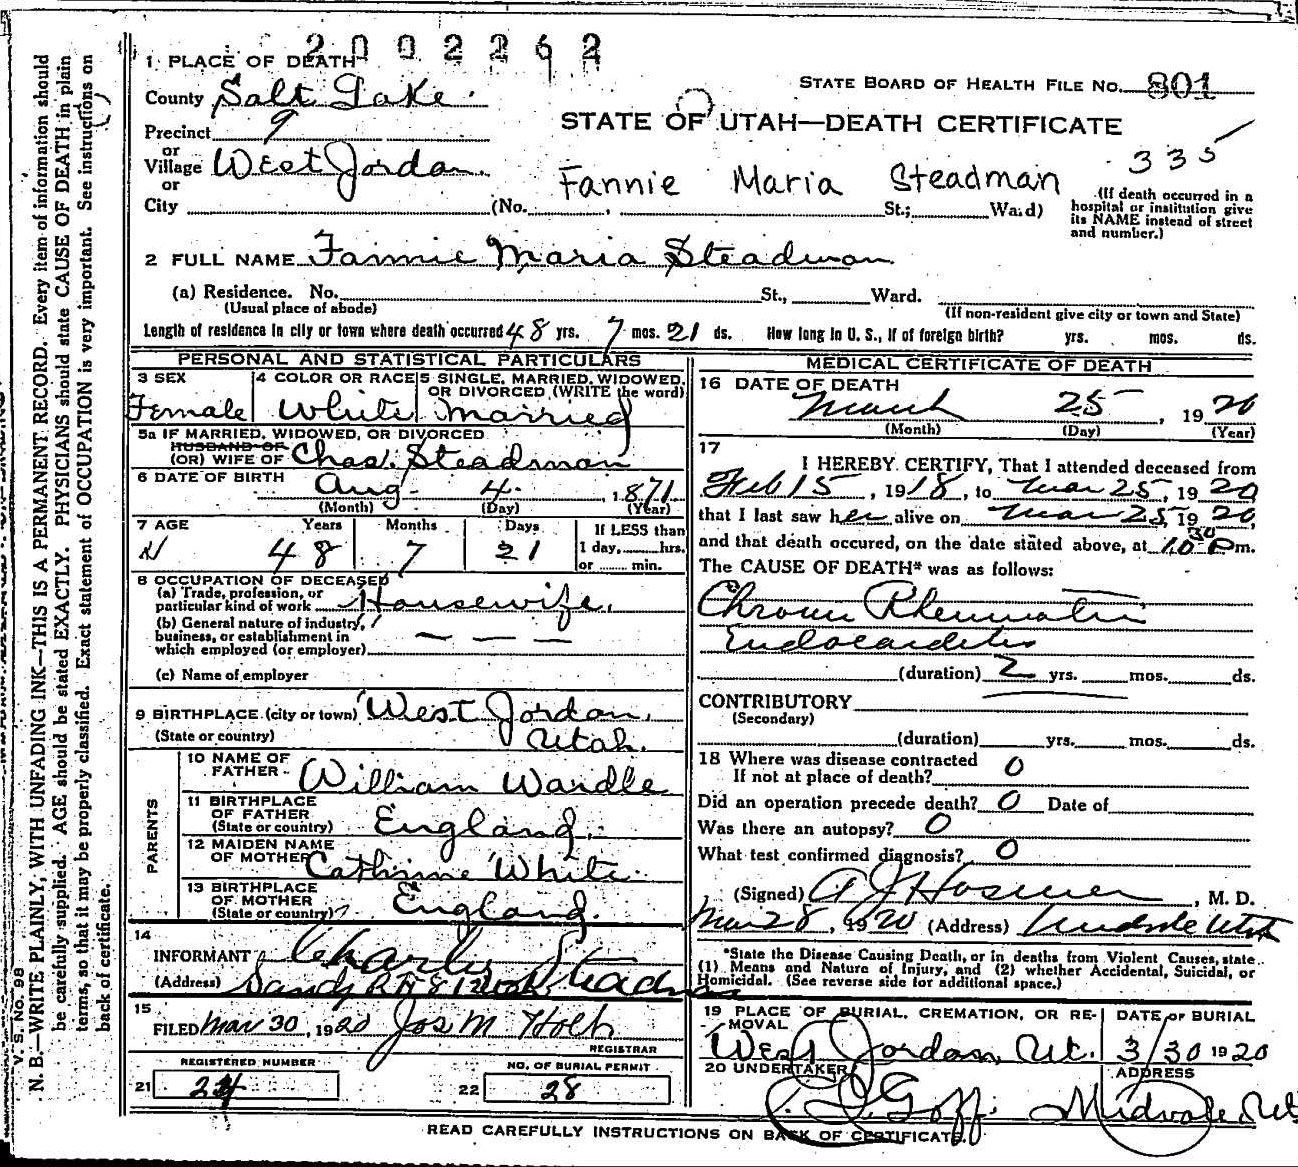 2002262
1 PLACE OF DEATH
STATE BOARD OF HEALTH FILE NO. 801
County Salt Lake.
STATE OF UTAH—DEATH CERTIFICATE
Precinct 9
or
Village West Jordan.
335
Fannie Maria Steadman
or
City (No. , St.; Ward)
(If death occurred in a
hospital or institution give
its NAME instead of street
and number.)
2 FULL NAME Fannie Maria Steadman.
(a) Residence. No. St., Ward.
(Usual place of abode)
(If non-resident give city or town and State)
Length of residence in city or town where death occurred 48 yrs. 7 mos. 21 ds. How long in U. S., if of foreign birth? yrs. mos. ds.
PERSONAL AND STATISTICAL PARTICULARS
3 SEX
Female
4 COLOR OR RACE
White
5 SINGLE, MARRIED, WIDOWED,
OR DIVORCED (WRITE the word)
Married
5a IF MARRIED, WIDOWED, OR DIVORCED
HUSBAND OF
(OR) WIFE OF Chas. Steadman
6 DATE OF BIRTH Aug. 4. , 1871.
(Month) (Day) (Year)
7 AGE Years Months Days
48 7 21
If LESS than
1 day, hrs.
or min.
8 OCCUPATION OF DECEASED
(a) Trade, profession, or
particular kind of work Housewife.
(b) General nature of industry,
business, or establishment in
which employed (or employer) — — —
(c) Name of employer
9 BIRTHPLACE (city or town) West Jordan,
(State or country) Utah.
PARENTS
10 NAME OF
FATHER William Wardle
11 BIRTHPLACE
OF FATHER
(State or country) England.
12 MAIDEN NAME
OF MOTHER Cathrine White.
13 BIRTHPLACE
OF MOTHER
(State or country) England.
14
INFORMANT Charly Steadman
(Address) Sandy
15
FILED Mar 30, 1920 Jos M Holt
REGISTRAR
REGISTERED NUMBER
21 24
NO. OF BURIAL PERMIT
22 28
MEDICAL CERTIFICATE OF DEATH
16 DATE OF DEATH
March 25 , 1920
(Month) (Day) (Year)
17
I HEREBY CERTIFY, That I attended deceased from
Feb 15 , 1918, to Mar 25, 1920
that I last saw her alive on Mar 25, 1920,
and that death occured, on the date stated above, at 10 30 P m.
The CAUSE OF DEATH* was as follows:
Chronic Rheumatic
Endocarditis
(duration) 2 yrs. mos. ds.
CONTRIBUTORY
(Secondary)
(duration) yrs. mos. ds.
18 Where was disease contracted
If not at place of death? 0
Did an operation precede death? 0 Date of
Was there an autopsy? 0
What test confirmed diagnosis? 0
(Signed) A J Hosmer , M. D.
Mar 28, 1920 (Address) Midvale Utah
*State the Disease Causing Death, or in deaths from Violent Causes, state
(1) Means and Nature of Injury, and (2) whether Accidental, Suicidal, or
Homicidal. (See reverse side for additional space.)
19 PLACE OF BURIAL, CREMATION, OR RE-
MOVAL
West Jordan, Ut.
DATE OF BURIAL
3/30 1920
20 UNDERTAKER
Goff.
ADDRESS
Midvale, Ut
READ CAREFULLY INSTRUCTIONS ON BACK OF CERTIFICATE.
V. S. No. 98
N. B.—WRITE PLAINLY, WITH UNFADING INK—THIS IS A PERMANENT RECORD. Every item of information should
be carefully supplied. AGE should be stated EXACTLY. PHYSICIANS should state CAUSE OF DEATH in plain
terms, so that it may be properly classified. Exact statement of OCCUPATION is very important. See instructions on
back of certificate.